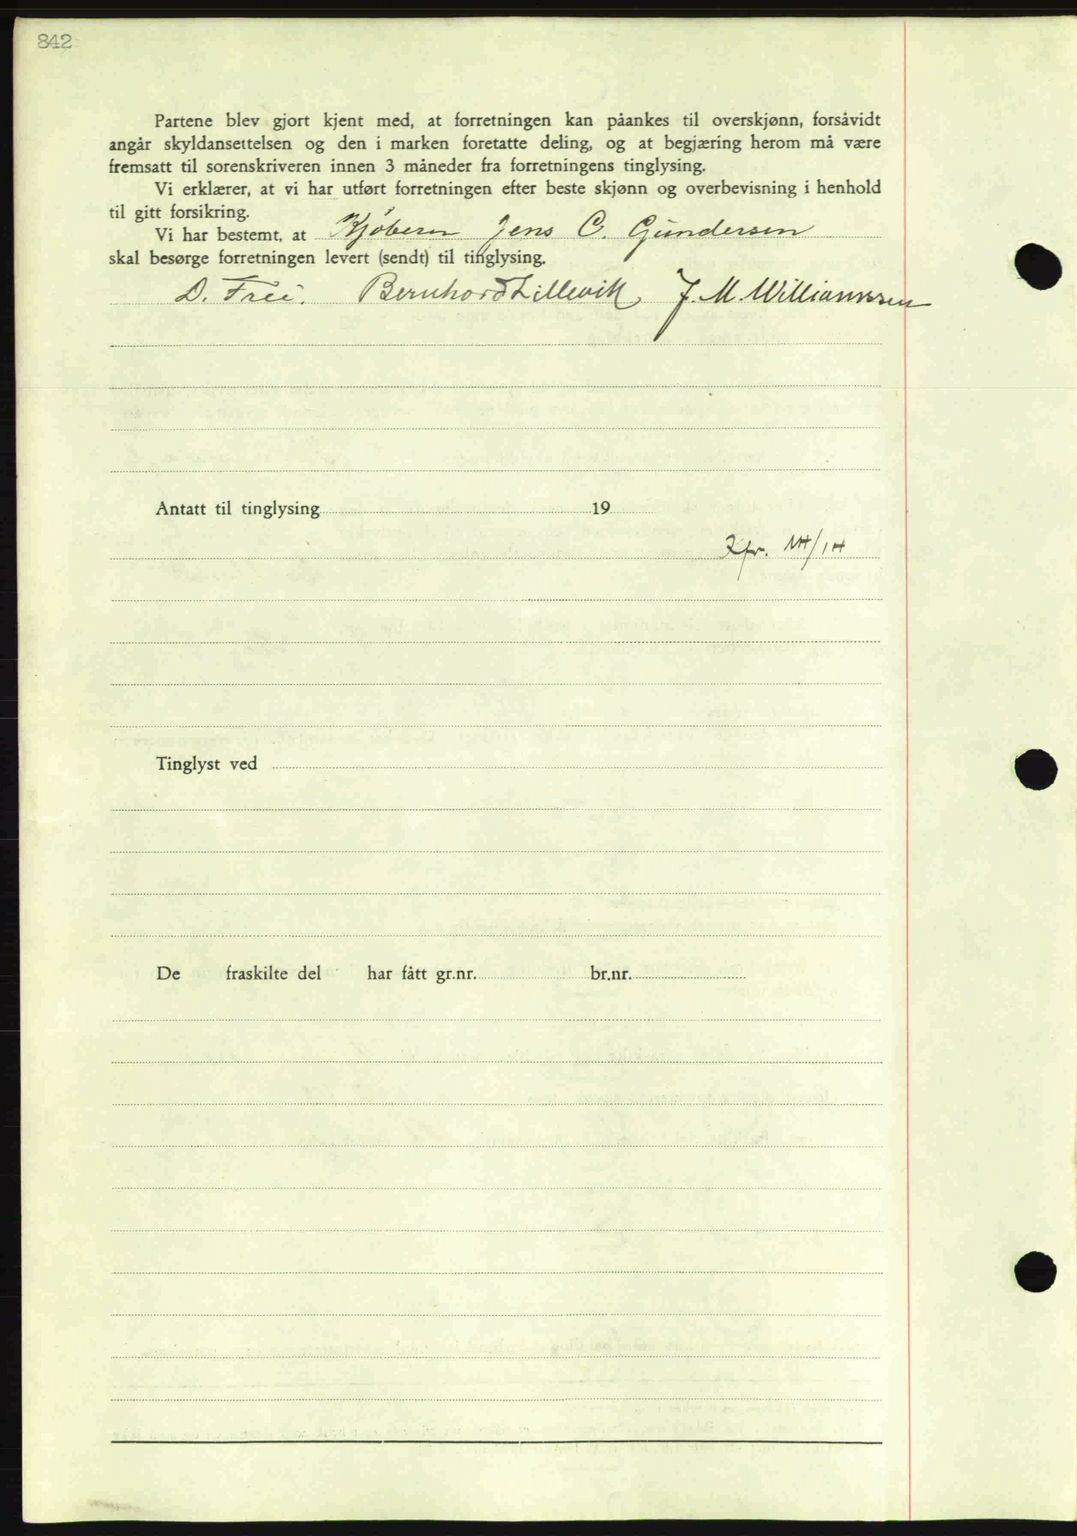 842
Partene blev gjort kjent med, at forretningen kan påankes til overskjønn, forsåvidt
angår skyldansettelsen og den i marken foretatte deling, og at begjæring herom må være
fremsatt til sorenskriveren innen 3 måneder fra forretningens tinglysing.
Vi erklærer, at vi har utført forretningen efter beste skjønn og overbevisning i henhold
til gitt forsikring.
Vi har bestemt, at Kjøberen Jens C. Gundersen
skal besørge forretningen levert (sendt) til tinglysing.
D. Frei. Bernhard Lillevik J. M. Williamsen
Antatt til tinglysing 19
Kfr.
Tinglyst ved
De fraskilte del har fått gr.nr. br.nr.